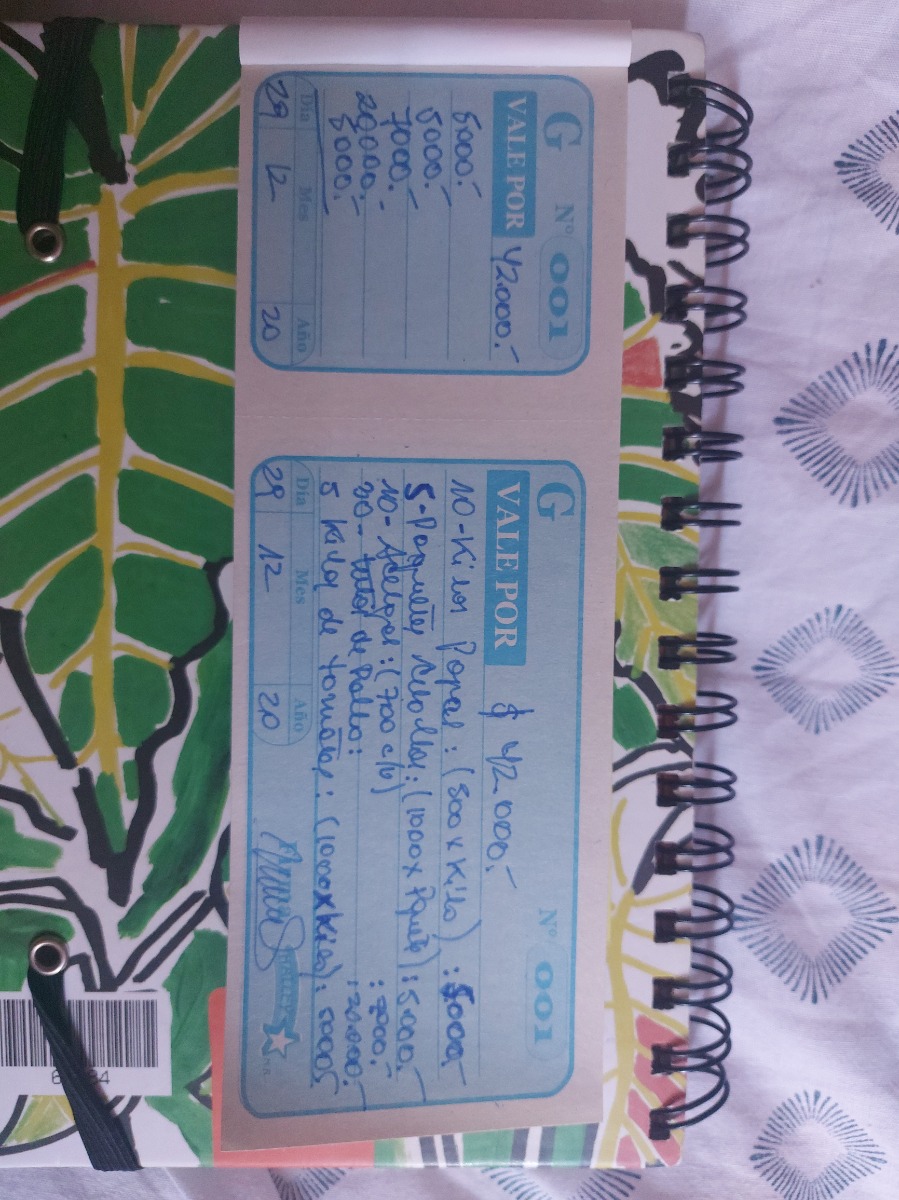 G Nº 001
VALE POR 42.000.-
5.000.-
5000.-
7000.-
20.000.-
5000.-
Día Mes Año
29 12 20
G Nº 001
VALE POR $ 42.000.-
10-Kilos Papas: (500 x Kilo) : 5000,-
5-Paquetes : (1000 x Pquete) : 5.000.-
10- Acelgas: (700 c/u) : 7000.-
de Pollo: : 20.000.-
5 Kilos de tomates: (1000xKilo): 5000
Día Mes Año
29 12 20